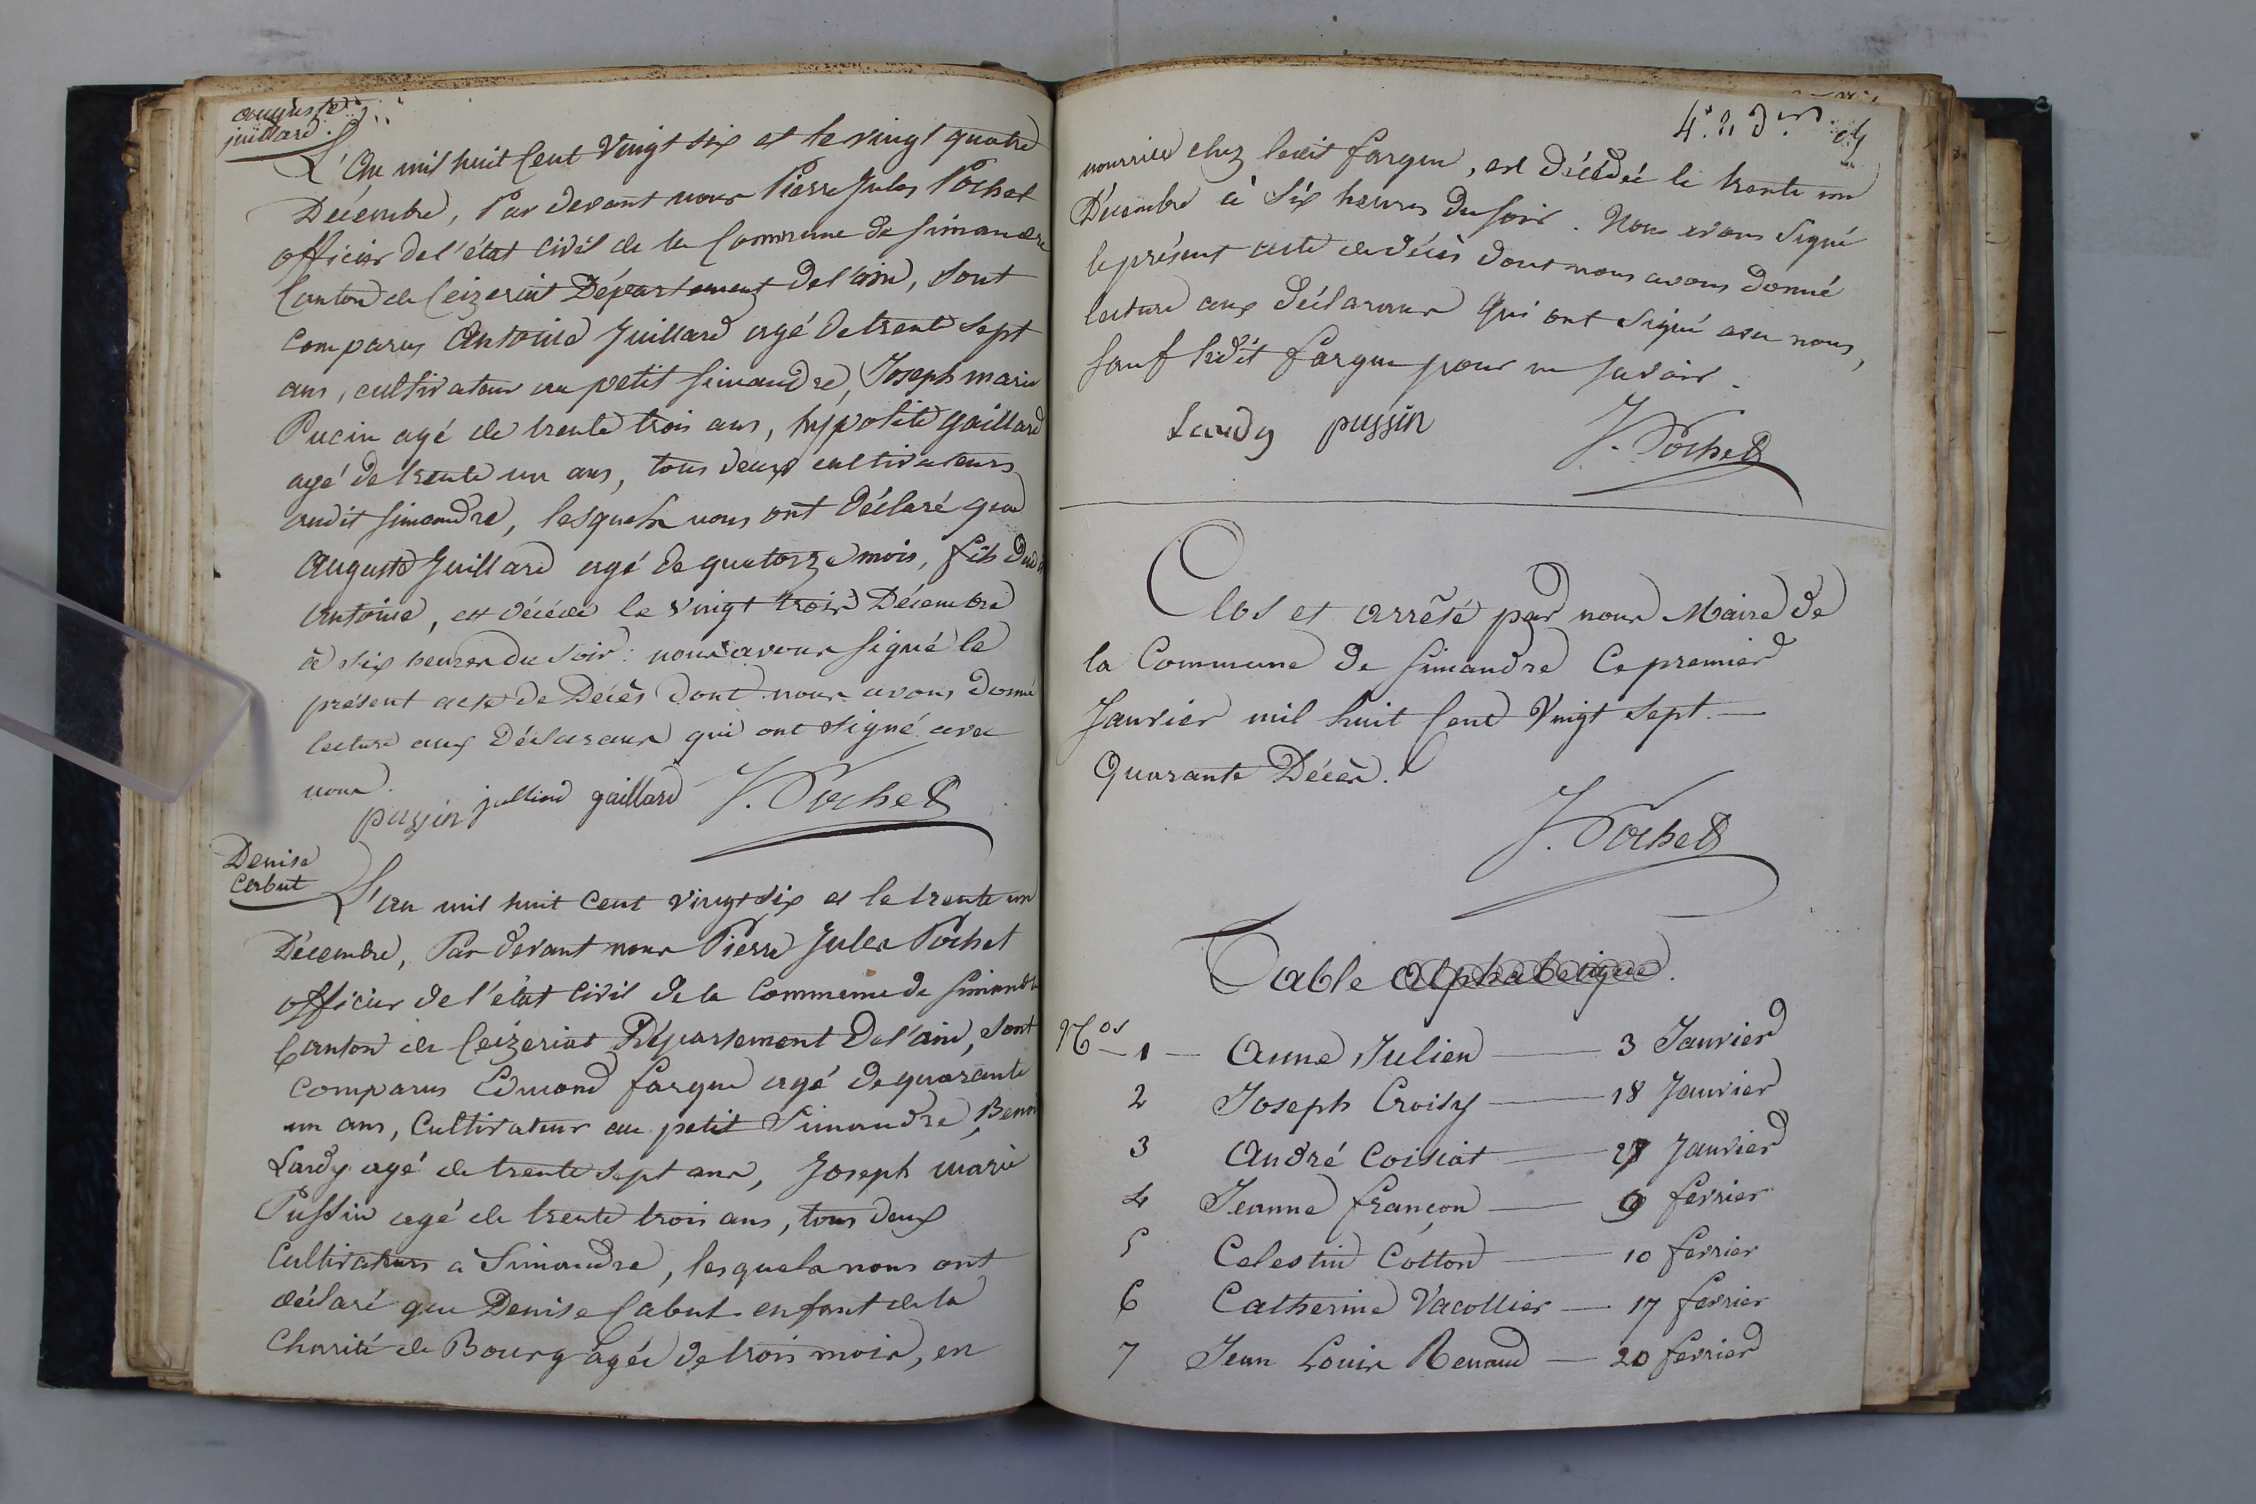 auguste
juillard.
L'An mil huit Cent Vingt six et le vingt quatre
Décembre, Par devant nous Pierre Jules Pochet
officier de l'état Civil de la Commune de Simandre
Canton de Ceizeriat Département de l'ain, sont
comparus Antoine Juillard agé de trente sept
ans, cultivateur au petit simandre, Joseph marie
Pucin agé de trente trois ans, hypolite gaillard
agé de trente un ans, tous deux cultivateurs
audit simandre, lesquels nous ont déclaré que
Auguste Juillard agé de quatorze mois, fils dudit
Antoine, est décédé le vingt trois Décembre
à six heures du soir : nous avons signé le
présent acte de Décès dont nous avons donné
lecture aux Déclarans qui ont signé avec
nous.
pussin julliard gaillard J. Pochet
Denise
Cabut
L'an mil huit cent vingt six et le trente un
Décembre, Par devant nous Pierre Jules Pochet
officier de l'état Civil de la commune de Simandre
Canton de Ceizeriat Département de l'ain, sont
comparus Edmond fargue agé de quarante
un ans, Cultivateur au petit Simandre, Benoit
Lardy agé de trente sept ans, Joseph marie
Pussin agé de trente trois ans, tous deux
Cultivateurs a Simandre, lesquels nous ont
déclaré que Denise Cabut enfant de la
Charité de Bourg agée de trois mois, en
4e. & der.
nourrice chez ledit fargue, est décédée le trente un
Décembre à six heures du soir. Nous avons signé
le présent acte de décès dont nous avons donné
lecture aux déclarans qui ont signé avec nous,
sauf ledit fargue pour ne savoir.
Lardy pussin J. Pochet
Clos et arrêté par nous Maire de
la Commune de Simandre Ce premier
Janvier mil huit Cent Vingt sept.
Quarante Décès.
J. Pochet
Table alphabetique.
Nos 1 Anne Julien 3 Janvier
2 Joseph Croisy 18 Janvier
3 André Coisiat 27 Janvier
4 Jeanne françon 9 fevrier
5 Celestin Cotton 10 fevrier
6 Catherine Vacollier 17 fevrier
7 Jean Louis Renaud 20 fevrier